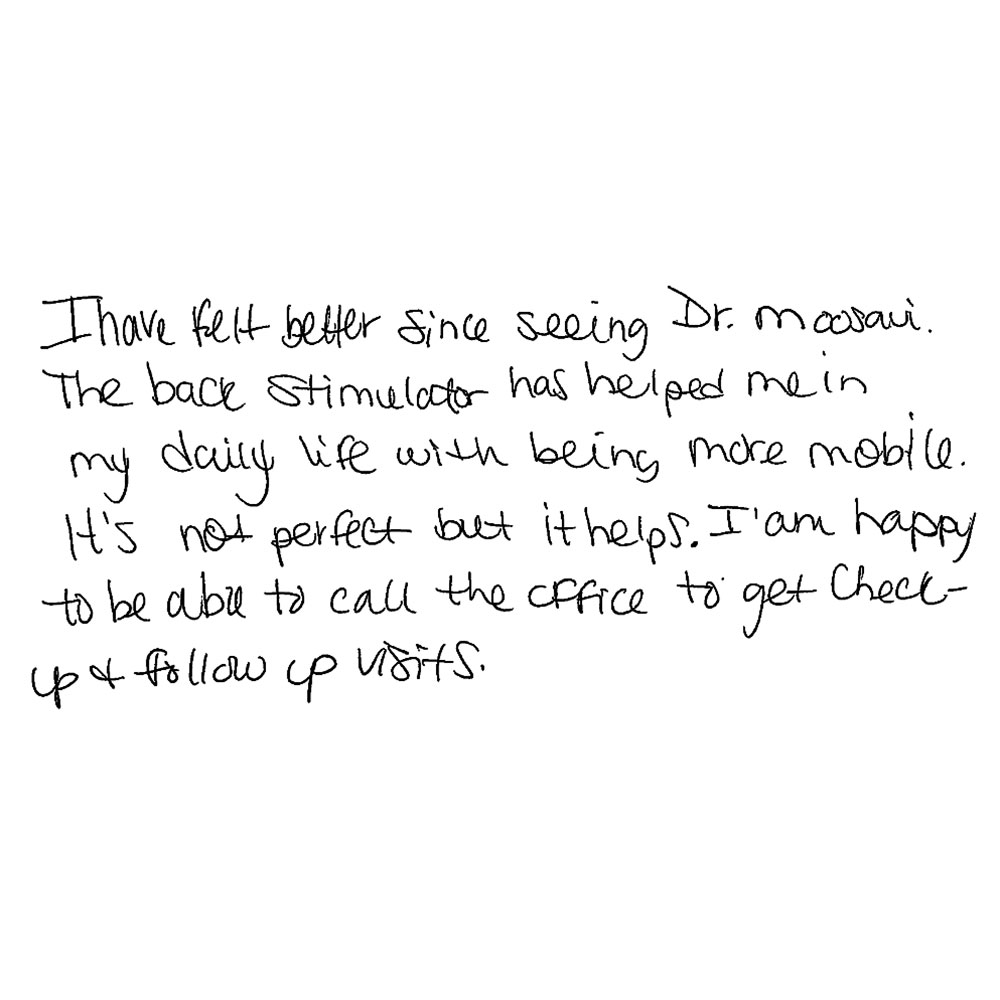 I have felt better since seeing Dr. Moosavi.
The back stimulator has helped me in
my daily life with being more mobile.
It's not perfect but it helps. I'am happy
to be able to call the office to get check-
up & follow up visits.